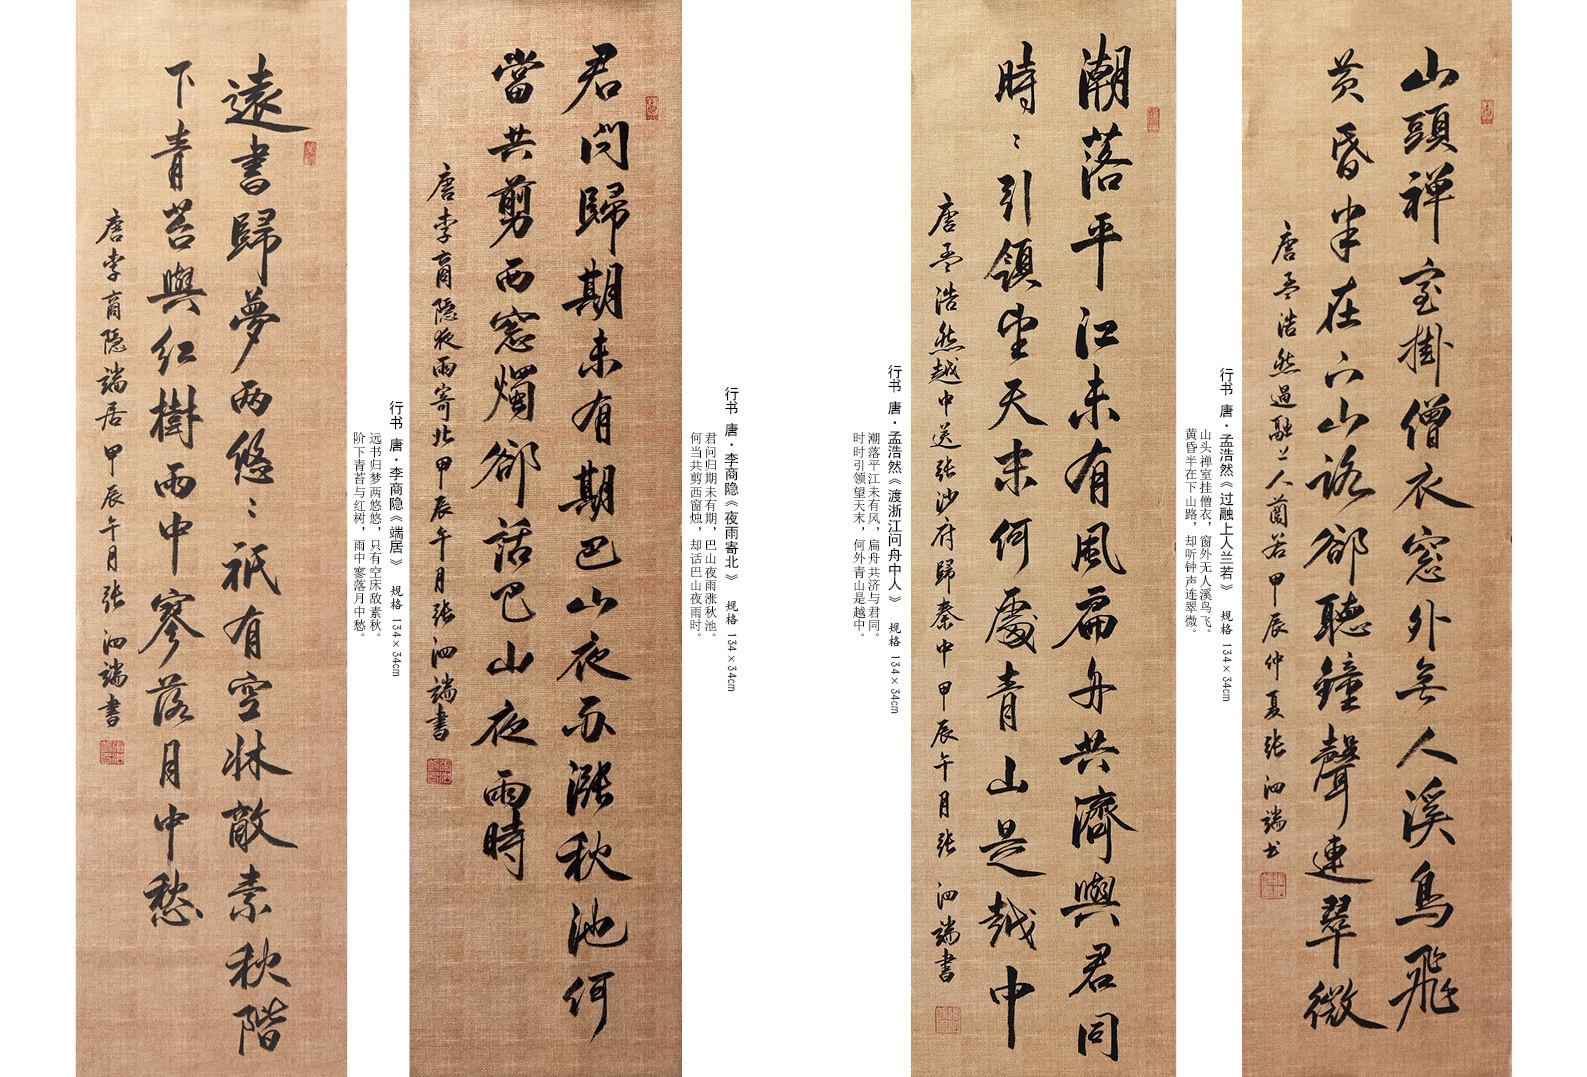 山頭禅室掛僧衣窓外無人溪鳥飛
黄昏半在下山路卻聽鐘聲連翠微
唐孟浩然過融上人蘭若甲辰仲夏张泗端书
行书 唐·孟浩然《过融上人兰若》 规格 134×34cm
山头禅室挂僧衣，窗外无人溪鸟飞。
黄昏半在下山路，却听钟声连翠微。
潮落平江未有風扁舟共濟與君同
時〻引領望天末何處青山是越中
唐孟浩然越中送张沙府歸秦中甲辰午月张泗端書
行书 唐·孟浩然《渡浙江问舟中人》 规格 134×34cm
潮落平江未有风，扁舟共济与君同。
时时引领望天末，何外青山是越中。
行书 唐·李商隐《夜雨寄北》 规格 134×34cm
君问归期未有期，巴山夜雨涨秋池。
何当共剪西窗烛，却话巴山夜雨时。
君問歸期未有期巴山夜雨漲秋池何
當共剪西窓燭卻話巴山夜雨時
唐李商隐夜雨寄北甲辰午月张泗端書
行书 唐·李商隐《端居》 规格 134×34cm
远书归梦两悠悠，只有空床敌素秋。
阶下青苔与红树，雨中寥落月中愁。
遠書歸夢两悠〻祇有空牀敵素秋階
下青苔與红樹雨中寥落月中愁
唐李商隐端居甲辰午月张泗端書